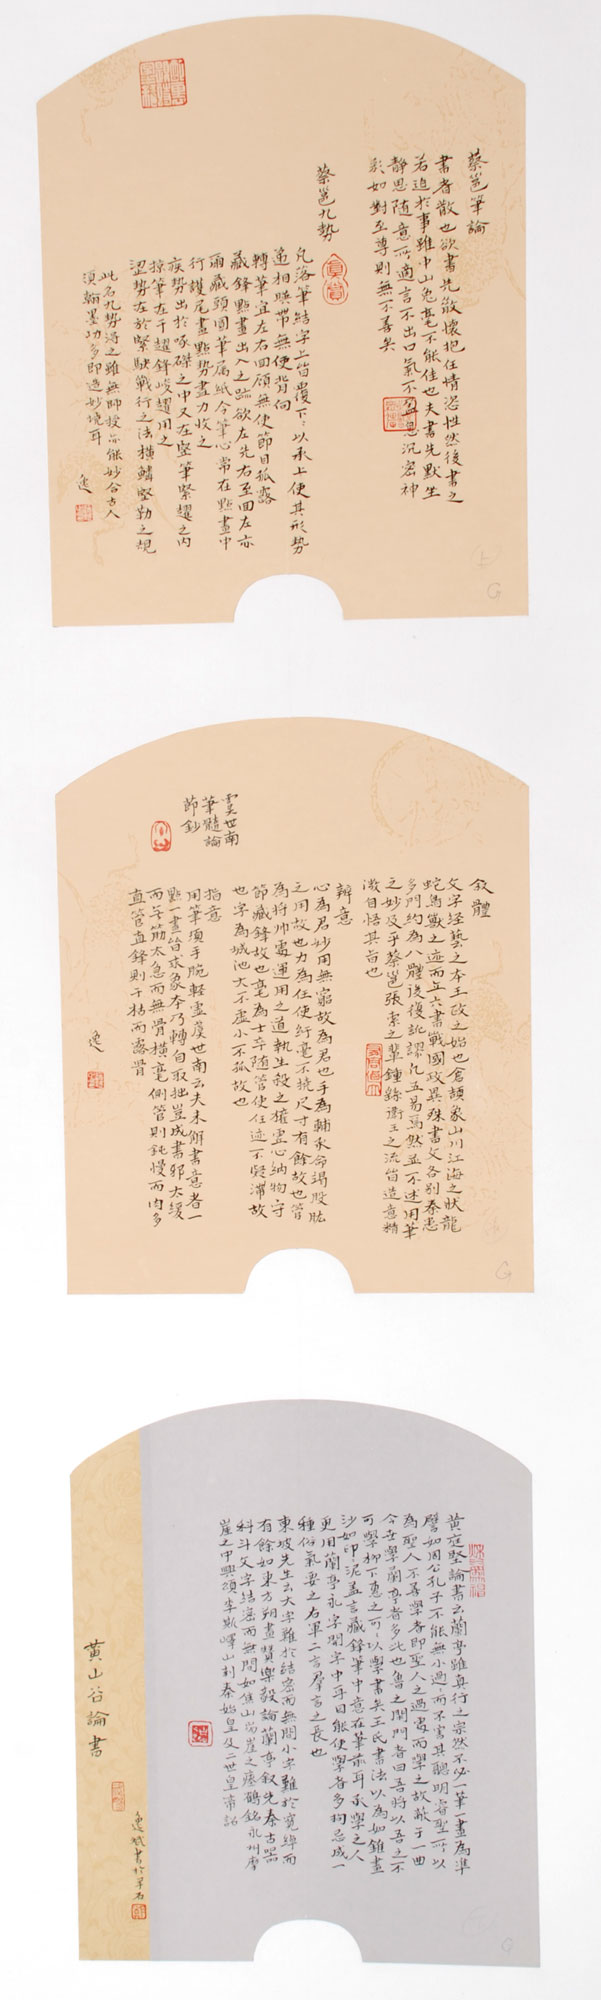 蔡邕筆論
書者散也欲書先散懷抱任情恣性然後書之
若迫於事雖中山兔毫不能佳也夫書先默坐
靜思隨意所適言不出口氣不盈息沉密神
彩如對至尊則無不善矣
蔡邕九勢
凡落筆結字上皆覆下下以承上使其形勢
遞相映帶無使背向
轉筆宜左右回顧無使節目孤露
藏鋒點畫出入之跡欲左先右至回左亦
爾藏頭圓筆屬紙令筆心常在點畫中
行護尾畫點勢盡力收之
疾勢出於啄磔之中又在豎筆緊趯之內
掠筆在于趲鋒峻趯用之
澀勢在於緊駃戰行之法橫鱗豎勒之規
此名九勢得之雖無師授亦能妙合古人
須翰墨功多即造妙境耳
逸
虞世南
筆髓論
節鈔
敘體
文字經藝之本王政之始也倉頡象山川江海之狀龍
蛇鳥獸之迹而立六書戰國政異殊書文各別秦患
多門約為八體後復訛謬凡五易焉然並不述用筆
之妙及乎蔡邕張索之輩鍾繇衛王之流皆造意精
微自悟其旨也
辨意
心為君妙用無窮故為君也手為輔承命竭股肱
之用故也力為任使纖毫不撓尺寸有餘故也管
為將帥處運用之道執生殺之權虛心納物守
節藏鋒故也毫為士卒隨管使任迹不凝滯故
也字為城池大不虛小不孤故也
指意
用筆須手腕輕虛虞世南云夫未解書意者一
點一畫皆求象本乃轉自取拙豈成書邪太緩
而無筋太急而無骨橫毫側管則鈍慢而肉多
直管直鋒則干枯而露骨
逸
黃庭堅論書云蘭亭雖真行之宗然不必一筆一畫為準
譬如周公孔子不能無小過過而不害其聰明睿聖所以
為聖人不善學者即聖人之過處而學之故蔽于一曲
今世學蘭亭者多此也魯之閉門者曰吾將以吾之不
可學柳下惠之可可以學書矣王氏書法以為如錐畫
沙如印印泥蓋言藏鋒筆中意在筆前耳承學之人
更用蘭亭永字開字中手目能使學者多拘忌成一
種俗氣要之右軍二言群言之長也
東坡先生云大字難於結密而無間小字難於寬綽而
有餘如東方朔畫贊樂毅論蘭亭敘先秦古器
科斗文字結密而無間如焦山崩崖之瘞鶴銘永州摩
崖之中興頌李斯嶧山刻秦始皇及二世皇帝詔
黃山谷論書